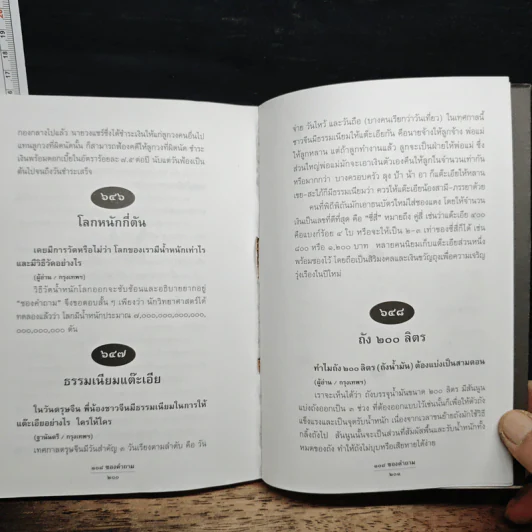 กองกลางไปแล้ว นายวงแชร์ซึ่งได้ชำระเงินให้แก่ลูกวงคนอื่นไป
แทนลูกวงที่ผิดนัดนั้น ก็สามารถฟ้องคดีให้ลูกวงที่ผิดนัด ชำระ
เงินพร้อมดอกเบี้ยในอัตราร้อยละ ๗.๕ ต่อปี นับแต่วันฟ้องเป็น
ต้นไปจนถึงวันชำระเสร็จ
๖๔๖
โลกหนักกี่ตัน
เคยมีการวัดหรือไม่ว่า โลกของเรามีน้ำหนักเท่าไร
และมีวิธีวัดอย่างไร
(ผู้อ่าน / กรุงเทพฯ)
วิธีวัดน้ำหนักโลกออกจะซับซ้อนและอธิบายยากอยู่
"ซองคำถาม" จึงขอตอบสั้น ๆ เพียงว่า นักวิทยาศาสตร์ได้
ทดลองแล้วว่า โลกมีน้ำหนักประมาณ ๗,๐๐๐,๐๐๐,๐๐๐,๐๐๐,
๐๐๐,๐๐๐,๐๐๐ ตัน
๖๔๗
ธรรมเนียมแต๊ะเอีย
ในวันตรุษจีน พี่น้องชาวจีนมีธรรมเนียมในการให้
แต๊ะเอียอย่างไร ใครให้ใคร
(ฐานันตรี / กรุงเทพฯ)
เทศกาลตรุษจีนมีวันสำคัญ ๓ วันเรียงตามลำดับ คือ วัน
๑๐๘ ซองคำถาม
๒๐๐
จ่าย วันไหว้ และวันถือ (บางคนเรียกว่าวันเที่ยว) ในเทศกาลนี้
ชาวจีนมีธรรมเนียมให้แต๊ะเอียกัน คือนายจ้างให้ลูกจ้าง พ่อแม่
ให้ลูกหลาน แต่ถ้าลูกทำงานแล้ว ลูกจะเป็นฝ่ายให้พ่อแม่ ซึ่ง
ส่วนใหญ่พ่อแม่มักจะเอาเงินตัวเองคืนให้ลูกในจำนวนเท่ากัน
หรือมากกว่า บางครอบครัว ลุง ป้า น้า อา ก็แต๊ะเอียให้หลาน
เขย-สะใภ้ก็มีธรรมเนียมว่า ควรให้แต๊ะเอียน้องสามี-ภรรยาด้วย
คนที่พิถีพิถันมักเอาธนบัตรใหม่ใส่ซองแดง โดยให้จำนวน
เงินเป็นเลขที่ดีที่สุด คือ "ซี่สี่" หมายถึง คู่สี่ เช่นว่าแต๊ะเอีย ๔๐๐
คือแบงก์ร้อย ๔ ใบ หรือจะให้เป็น ๒-๓ เท่าของซี่สี่ก็ได้ เช่น
๘๐๐ หรือ ๑,๒๐๐ บาท หลายคนนิยมเก็บแต๊ะเอียส่วนหนึ่ง
พร้อมซองไว้ โดยถือเป็นสิริมงคลและเงินขวัญถุงเพื่อความเจริญ
รุ่งเรืองในปีใหม่
๖๔๘
ถัง ๒๐๐ ลิตร
ทำไมถัง ๒๐๐ ลิตร (ถังน้ำมัน) ต้องแบ่งเป็นสามตอน
(ผู้อ่าน / กรุงเทพฯ)
เราจะเห็นได้ว่า ถังบรรจุน้ำมันขนาด ๒๐๐ ลิตร มีสันนูน
แบ่งถังออกเป็น ๓ ช่วง ที่ต้องออกแบบไว้เช่นนั้นก็เพื่อให้ตัวถัง
แข็งแรงและเป็นจุดรับน้ำหนัก เนื่องจากเวลาขนย้ายถังมักใช้วิธี
กลิ้งถังไป สันนูนนั้นจะเป็นส่วนที่สัมผัสพื้นและรับน้ำหนักทั้ง
หมดของถัง ทำให้ถังไม่บุบหรือเสียหายได้ง่าย
๑๐๘ ซองคำถาม
๒๐๑